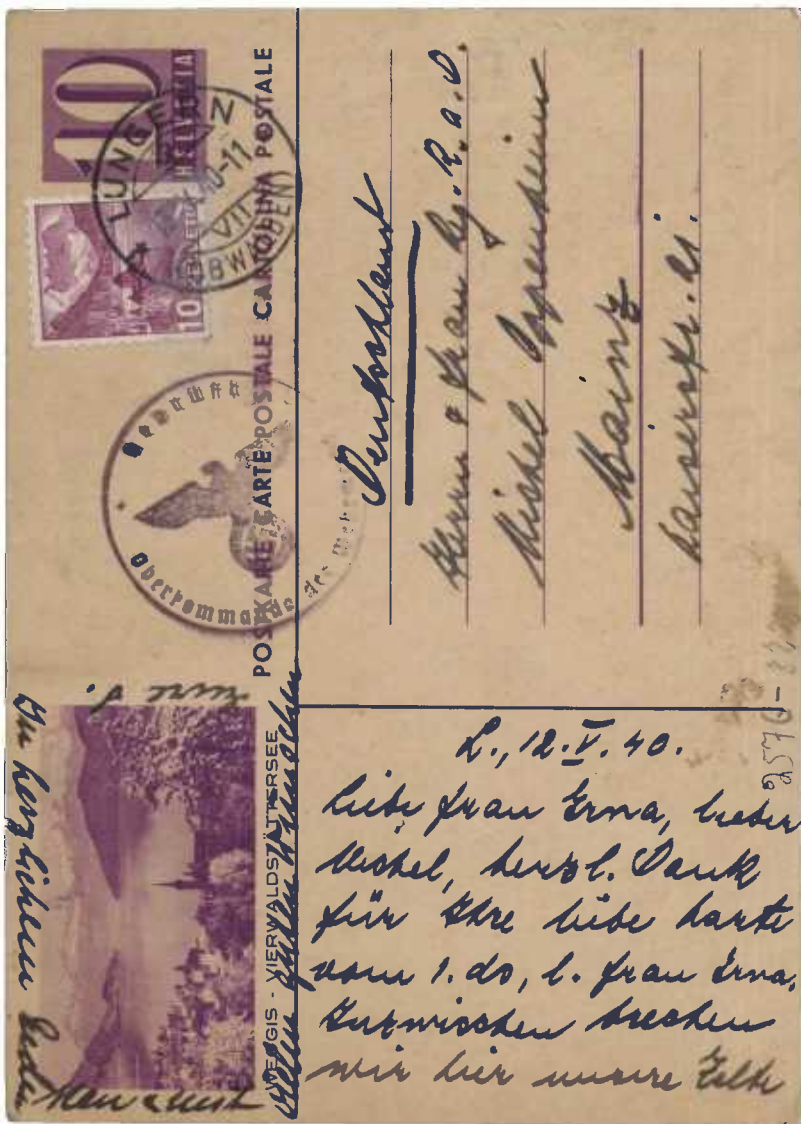 10
HELVETIA
LUNGERN
-11
VII
(OBWALDEN)
10
HELVETIA
POSTKARTE CARTE POSTALE CARTOLINA POSTALE
Geprüft
Oberkommando der Wehrmacht
Deutschland
Herrn & Frau Reg. R. a. D.
Michel Oppenheim
Mainz
Kaiserstr.
WEGGIS - VIERWALDSTÄTTERSEE
L., 12.V.40.
Liebe Frau Erna, lieber
Michel, herzl. Dank
für Ihre liebe Karte
vom 1. do, l. Frau Erna.
Inzwischen brechen
wir hier unsere Zelte
allen guten Wünschen
Ihr herzlichen